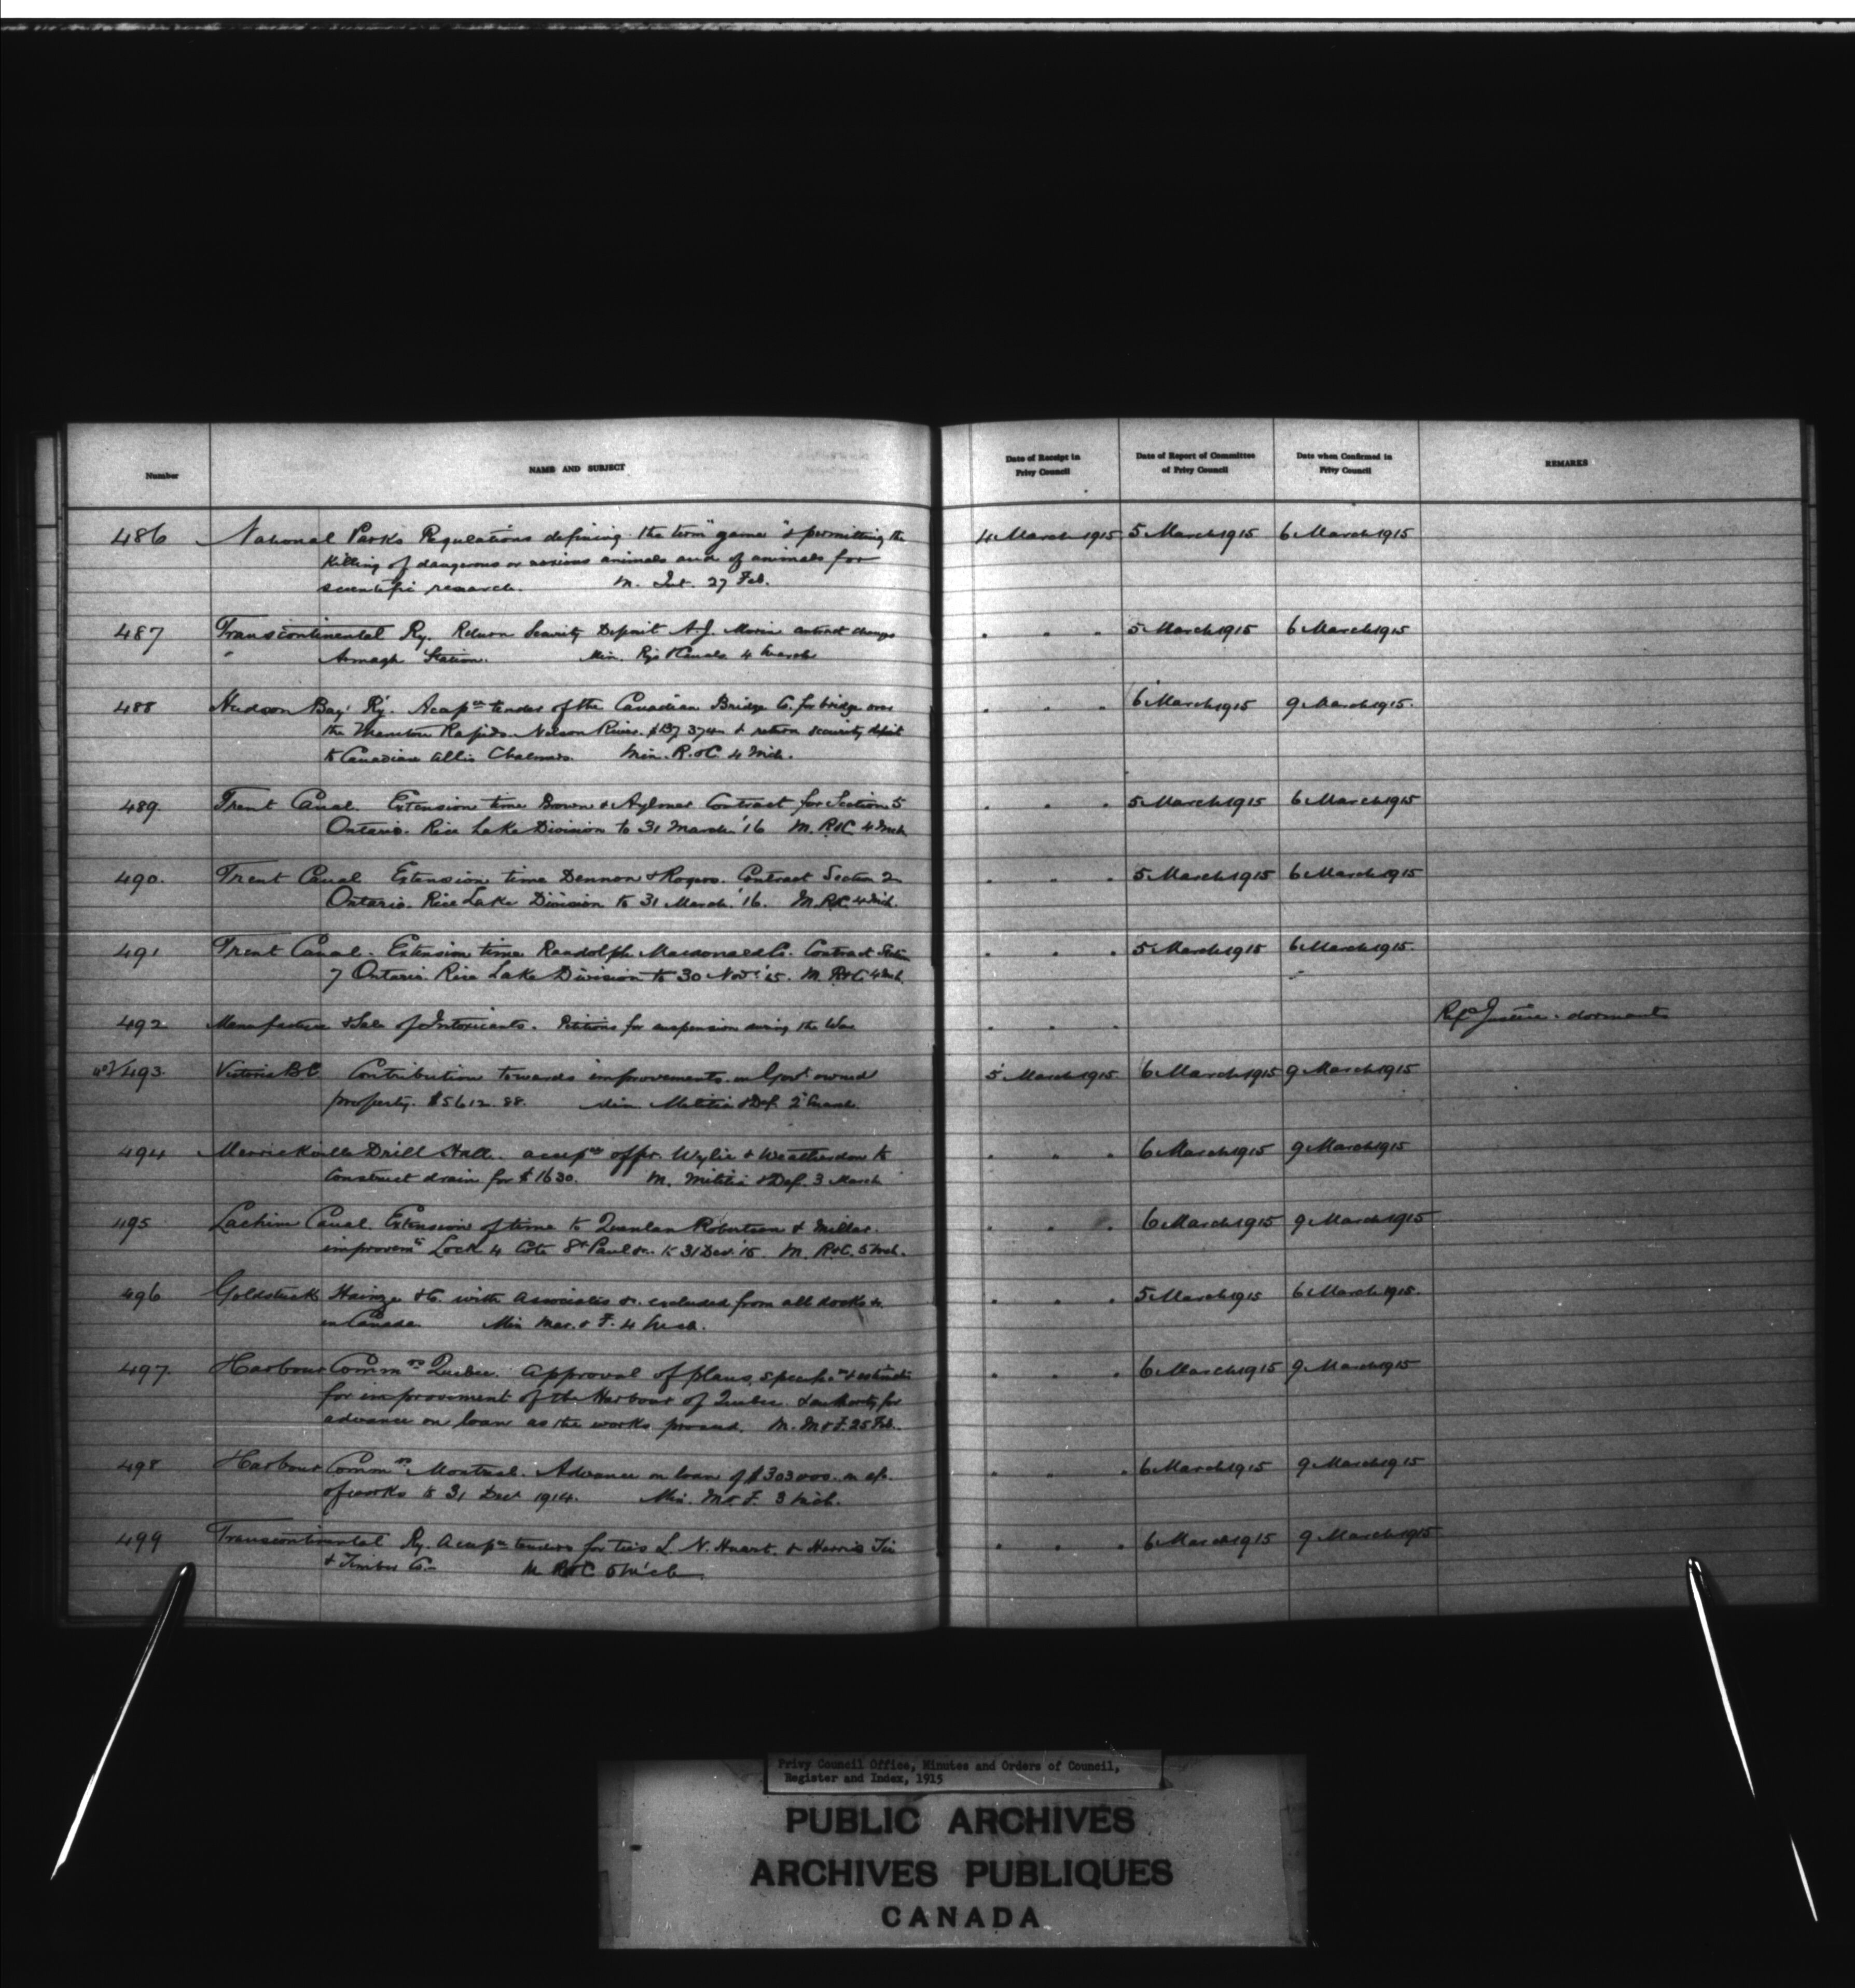 Number
NAME AND SUBJECT
Date of Receipt in Privy Council
Date of Report of Committee of Privy Council
Date when Confirmed in Privy Council
REMARKS
486 National Parks Regulations defining the term "game" & permitting the 4 March 1915 5 March 1915 6 March 1915
killing of dangerous or noxious animals and of animals for
scientific research. M. Int. 27 Feb.
487 Transcontinental Ry. Return Security Deposit A.J. Morin contract change " " " 5 March 1915 6 March 1915
Armagh Station. Min. Rys & Canals 4 March
488 Hudson Bay Ry. Accepce tender of the Canadian Bridge Co. for bridge over " " " 6 March 1915 9 March 1915.
the Manitou Rapids Nelson River. & return security deposit
to Canadian Allis Chalmers. Min. R. & C. 4 Mch.
489. Trent Canal. Extension time Brown & Aylmer Contract for Section 5 " " " 5 March 1915 6 March 1915
Ontario. Rice Lake Division to 31 March '16 M. R&C. 4 Mch.
490. Trent Canal Extension time Dennon & Rogers. Contract Section 2 " " " 5 March 1915 6 March 1915
Ontario. Rice Lake Division to 31 March. '16. M. R&C. 4 Mch.
491 Trent Canal. Extension time Randolph Macdonald Co. Contract Section " " " 5 March 1915 6 March 1915.
7 Ontario Rice Lake Division to 30 Novr '15. M. R&C. 4 Mch.
492 Manufacture & Sale of Intoxicants. Petitions for suspension during the War " " " Refd Justice. dormant
493. Victoria B.C. Contribution towards improvements on Govt. owned 5 March 1915. 6 March 1915 9 March 1915
property. $5612.88. Min Militia & Def. 2 March
494 Merrickville Drill Hall. accepce offer. Wylie & Weatherdon to " " " 6 March 1915 9 March 1915
construct drain for $1630. M. Militia & Def. 3 March
495 Lachine Canal. Extension of time to Quinlan Robertson & Millar. " " " 6 March 1915 9 March 1915
improvemts Lock 4 Cote St Paul &c. to 31 Dec. '15. M. R&C. 5 Mch.
496 Goldstuck Hainze & Co. with associates &c. excluded from all docks &c. " " " 5 March 1915 6 March 1915.
in Canada Min Mar. & F. 4 Mch.
497. Harbour Commrs Quebec. Approval of plans, specifns & estimates " " " 6 March 1915 9 March 1915
for improvement of the Harbour of Quebec & authority for
advance on loan as the works proceed. M. M & F. 25 Feb.
498 Harbour Commrs Montreal. Advance on loan of $303000. on a/c. " " " 6 March 1915 9 March 1915
of works to 31 Decr 1914. Min. M & F. 3 Mch.
499 Transcontinental Ry. Accepce tenders for ties L. N. Huart. & Harris Tie " " " 6 March 1915 9 March 1915
& Timber Co. M R&C 5 Mch
Privy Council Office, Minutes and Orders of Council,
Register and Index, 1915
PUBLIC ARCHIVES
ARCHIVES PUBLIQUES
CANADA